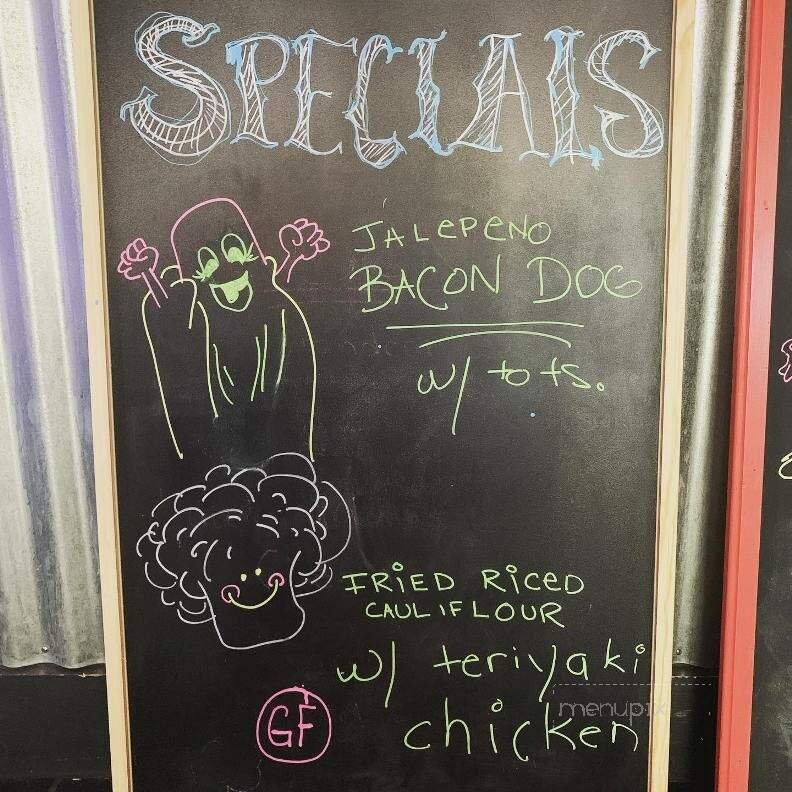 SPECIALS
JALEPENO
BACON DOG
w/ tots.
FRIED RICED
CAULIFLOUR
w/ teriyaki
GF chicken
menupix